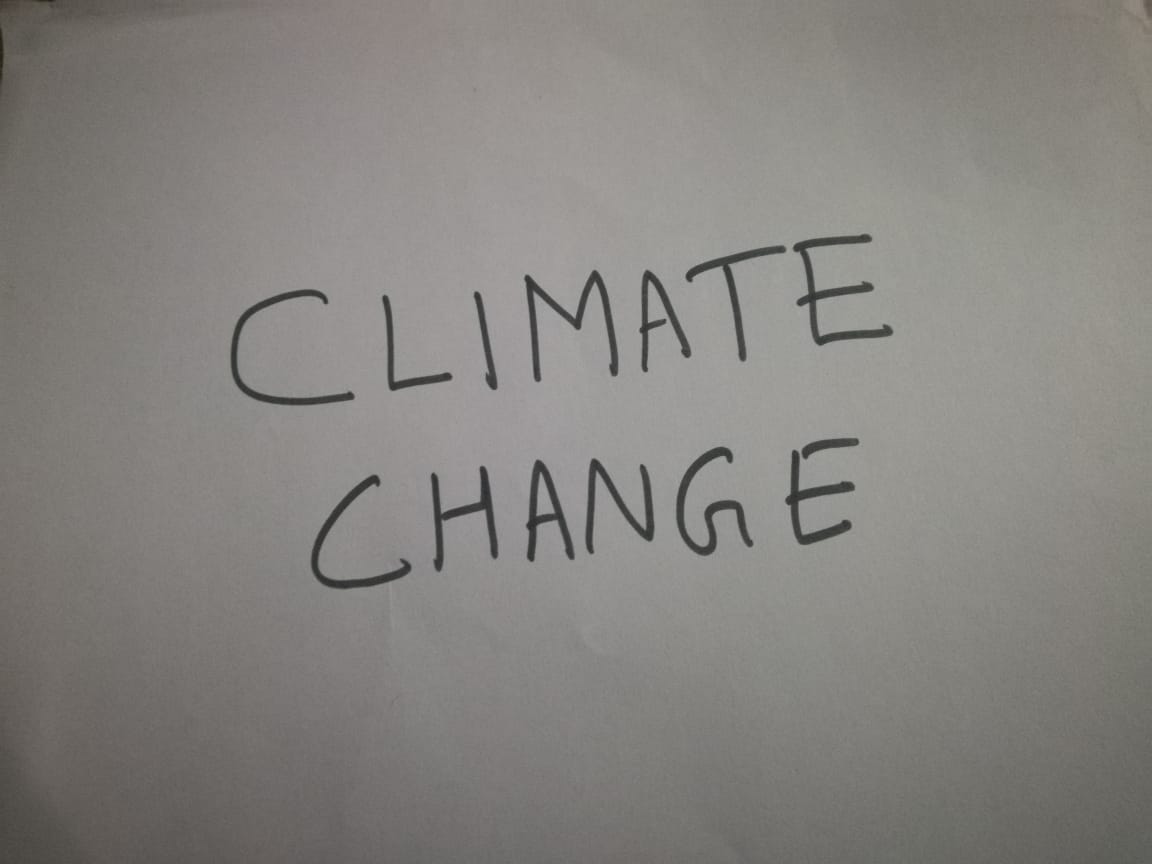 CLIMATE
CHANGE